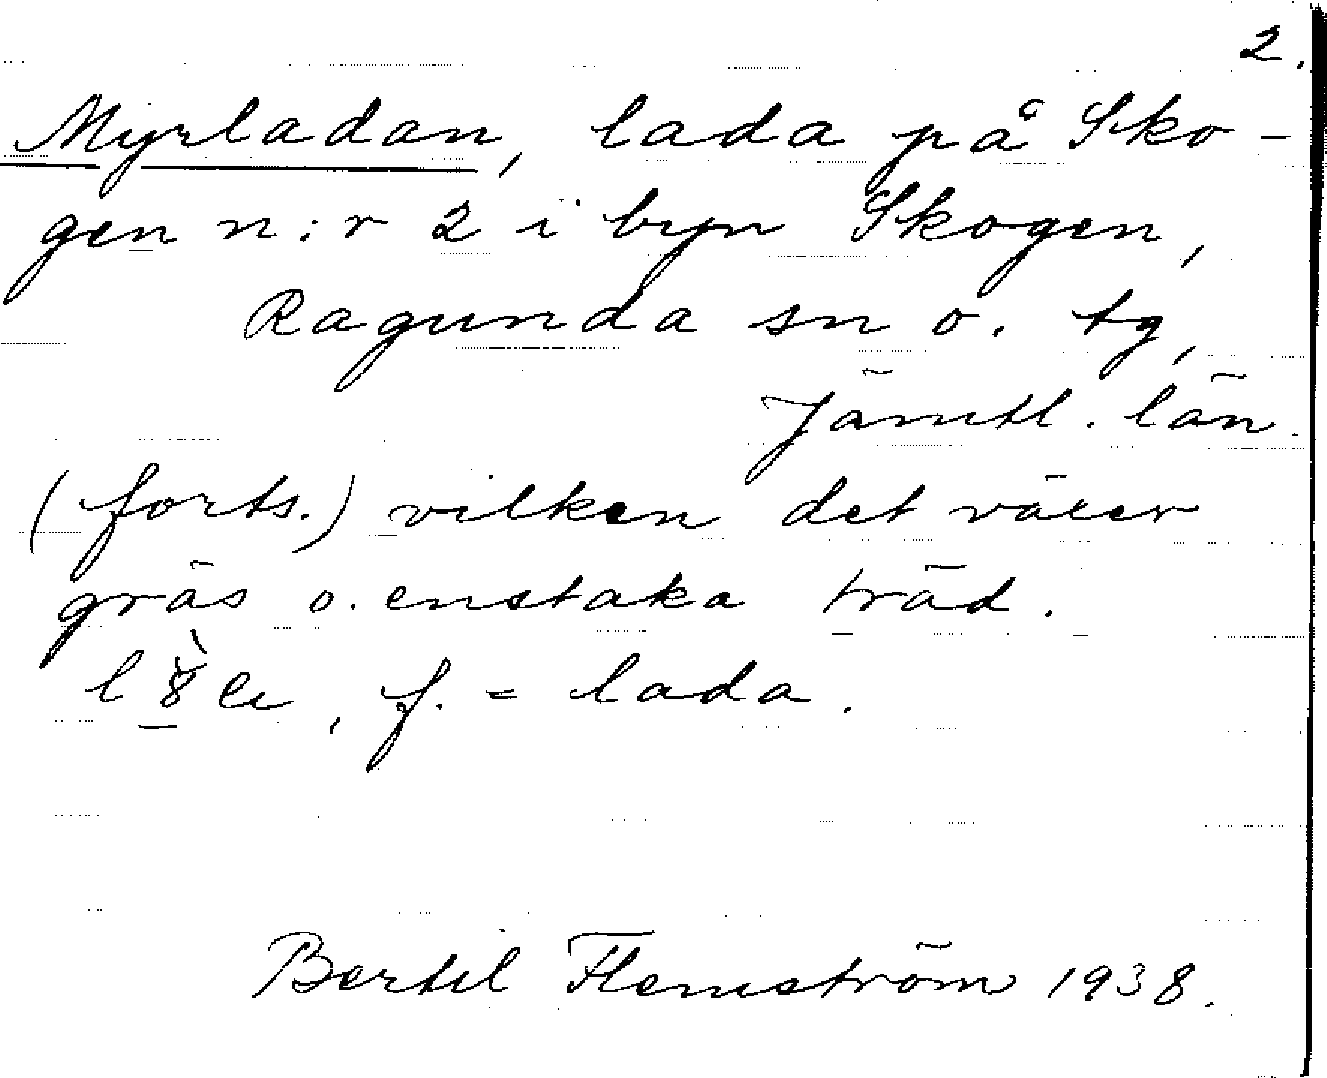 2.
Myrladan, lada på Sko-
gen n:r 2 i byn Skogen,
Ragunda sn o. tg,
Jämtl. län.
(forts.) vilken det växer
gräs o. enstaka träd.
f. = lada.
Bertil Flemström 1938.